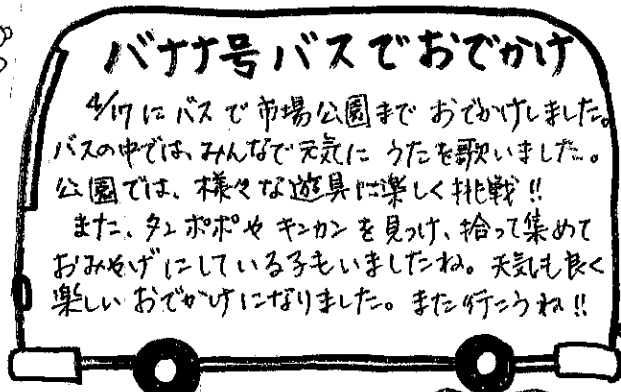 バナナ号バスでおでかけ
4/17にバスで市場公園までおでかけしました。
バスの中では、みんなで元気にうたを歌いました。
公園では、様々な遊具に楽しく挑戦!!
また、タンポポやキンカンを見つけ、拾って集めて
おみやげにしている子もいましたね。天気も良く
楽しいおでかけになりました。また行こうね!!